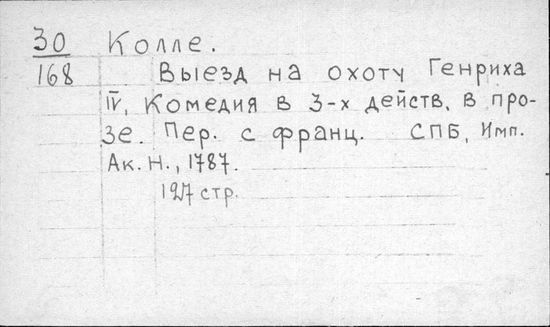 30 Колле.
168 Выезд на охоту Генриха
IV, Комедия в 3-х действ. в про-
зе. Пер. с франц. СПБ, Имп.
Ак. Н., 1787.
127 стр.